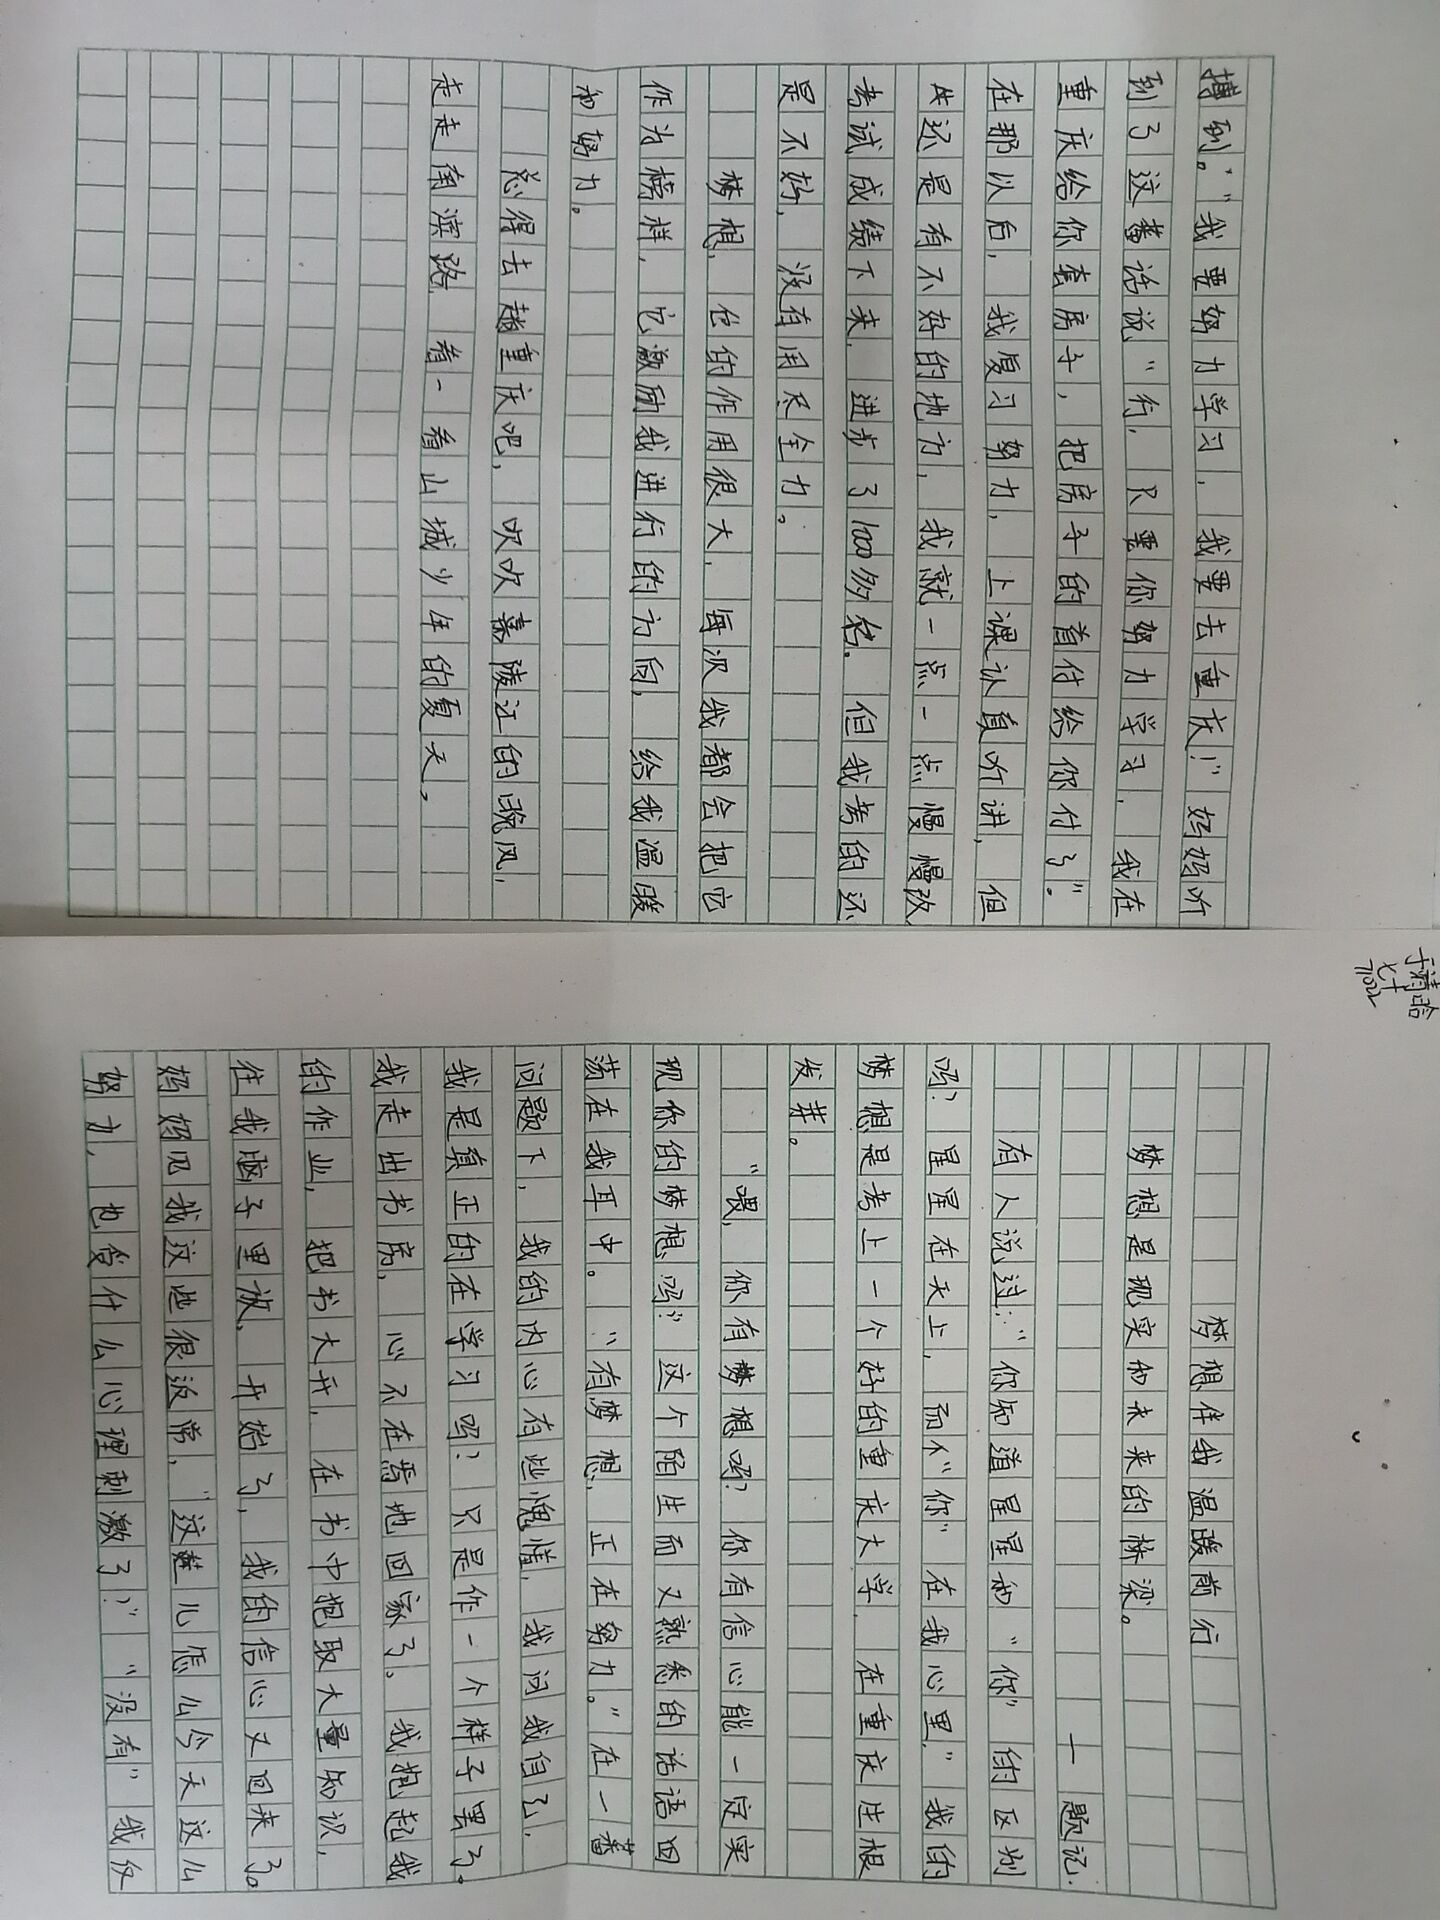 于清晗
七十
71022
梦想伴我温暖前行
梦想是现实和未来的桥梁。
——题记.
有人说过:“你知道星星和“你”的区别
吗?星星在天上,而不“你”在我心里,”我的
梦想是考上一个好的重庆大学,在重庆生根
发芽。
“喂,你有梦想吗?你有信心能一定实
现你的梦想吗?”这个陌生而又熟悉的话语回
荡在我耳中。“有梦想,正在努力。”在一番
问题下,我的内心有些愧懂,我问我自己,
我是真正的在学习吗?只是作一个样子罢了。
我走出书房,心不在焉地回家了。我抱起我
的作业,把书大开,在书中抱取大量知识,
往我脑子里放,开始了,我的信心又回来了。
妈妈见我这地很汲常,“这娃儿怎么今天这么
努力,也受什么心理刺激了!”“没有”我仅
搏到。“我要努力学习,我要去重庆!”妈妈听
到了这番话说“行,只要你努力学习,我在
重庆给你套房子,把房子的首付给你付了”。
在那以后,我复习努力,上课认真听讲,但
我还是有不好的地方,我就一点一点慢慢改
考试成绩下来,进步了100多名。但我考的还
是不好,没有用尽全力。
梦想,它的作用很大,每次我都会把它
作为榜样,它激励我进行的方向,给我温暖
和努力。
总得去趟重庆吧,吹吹嘉陵江的晚风,
走走南滨路,看一看山城少年的夏天。